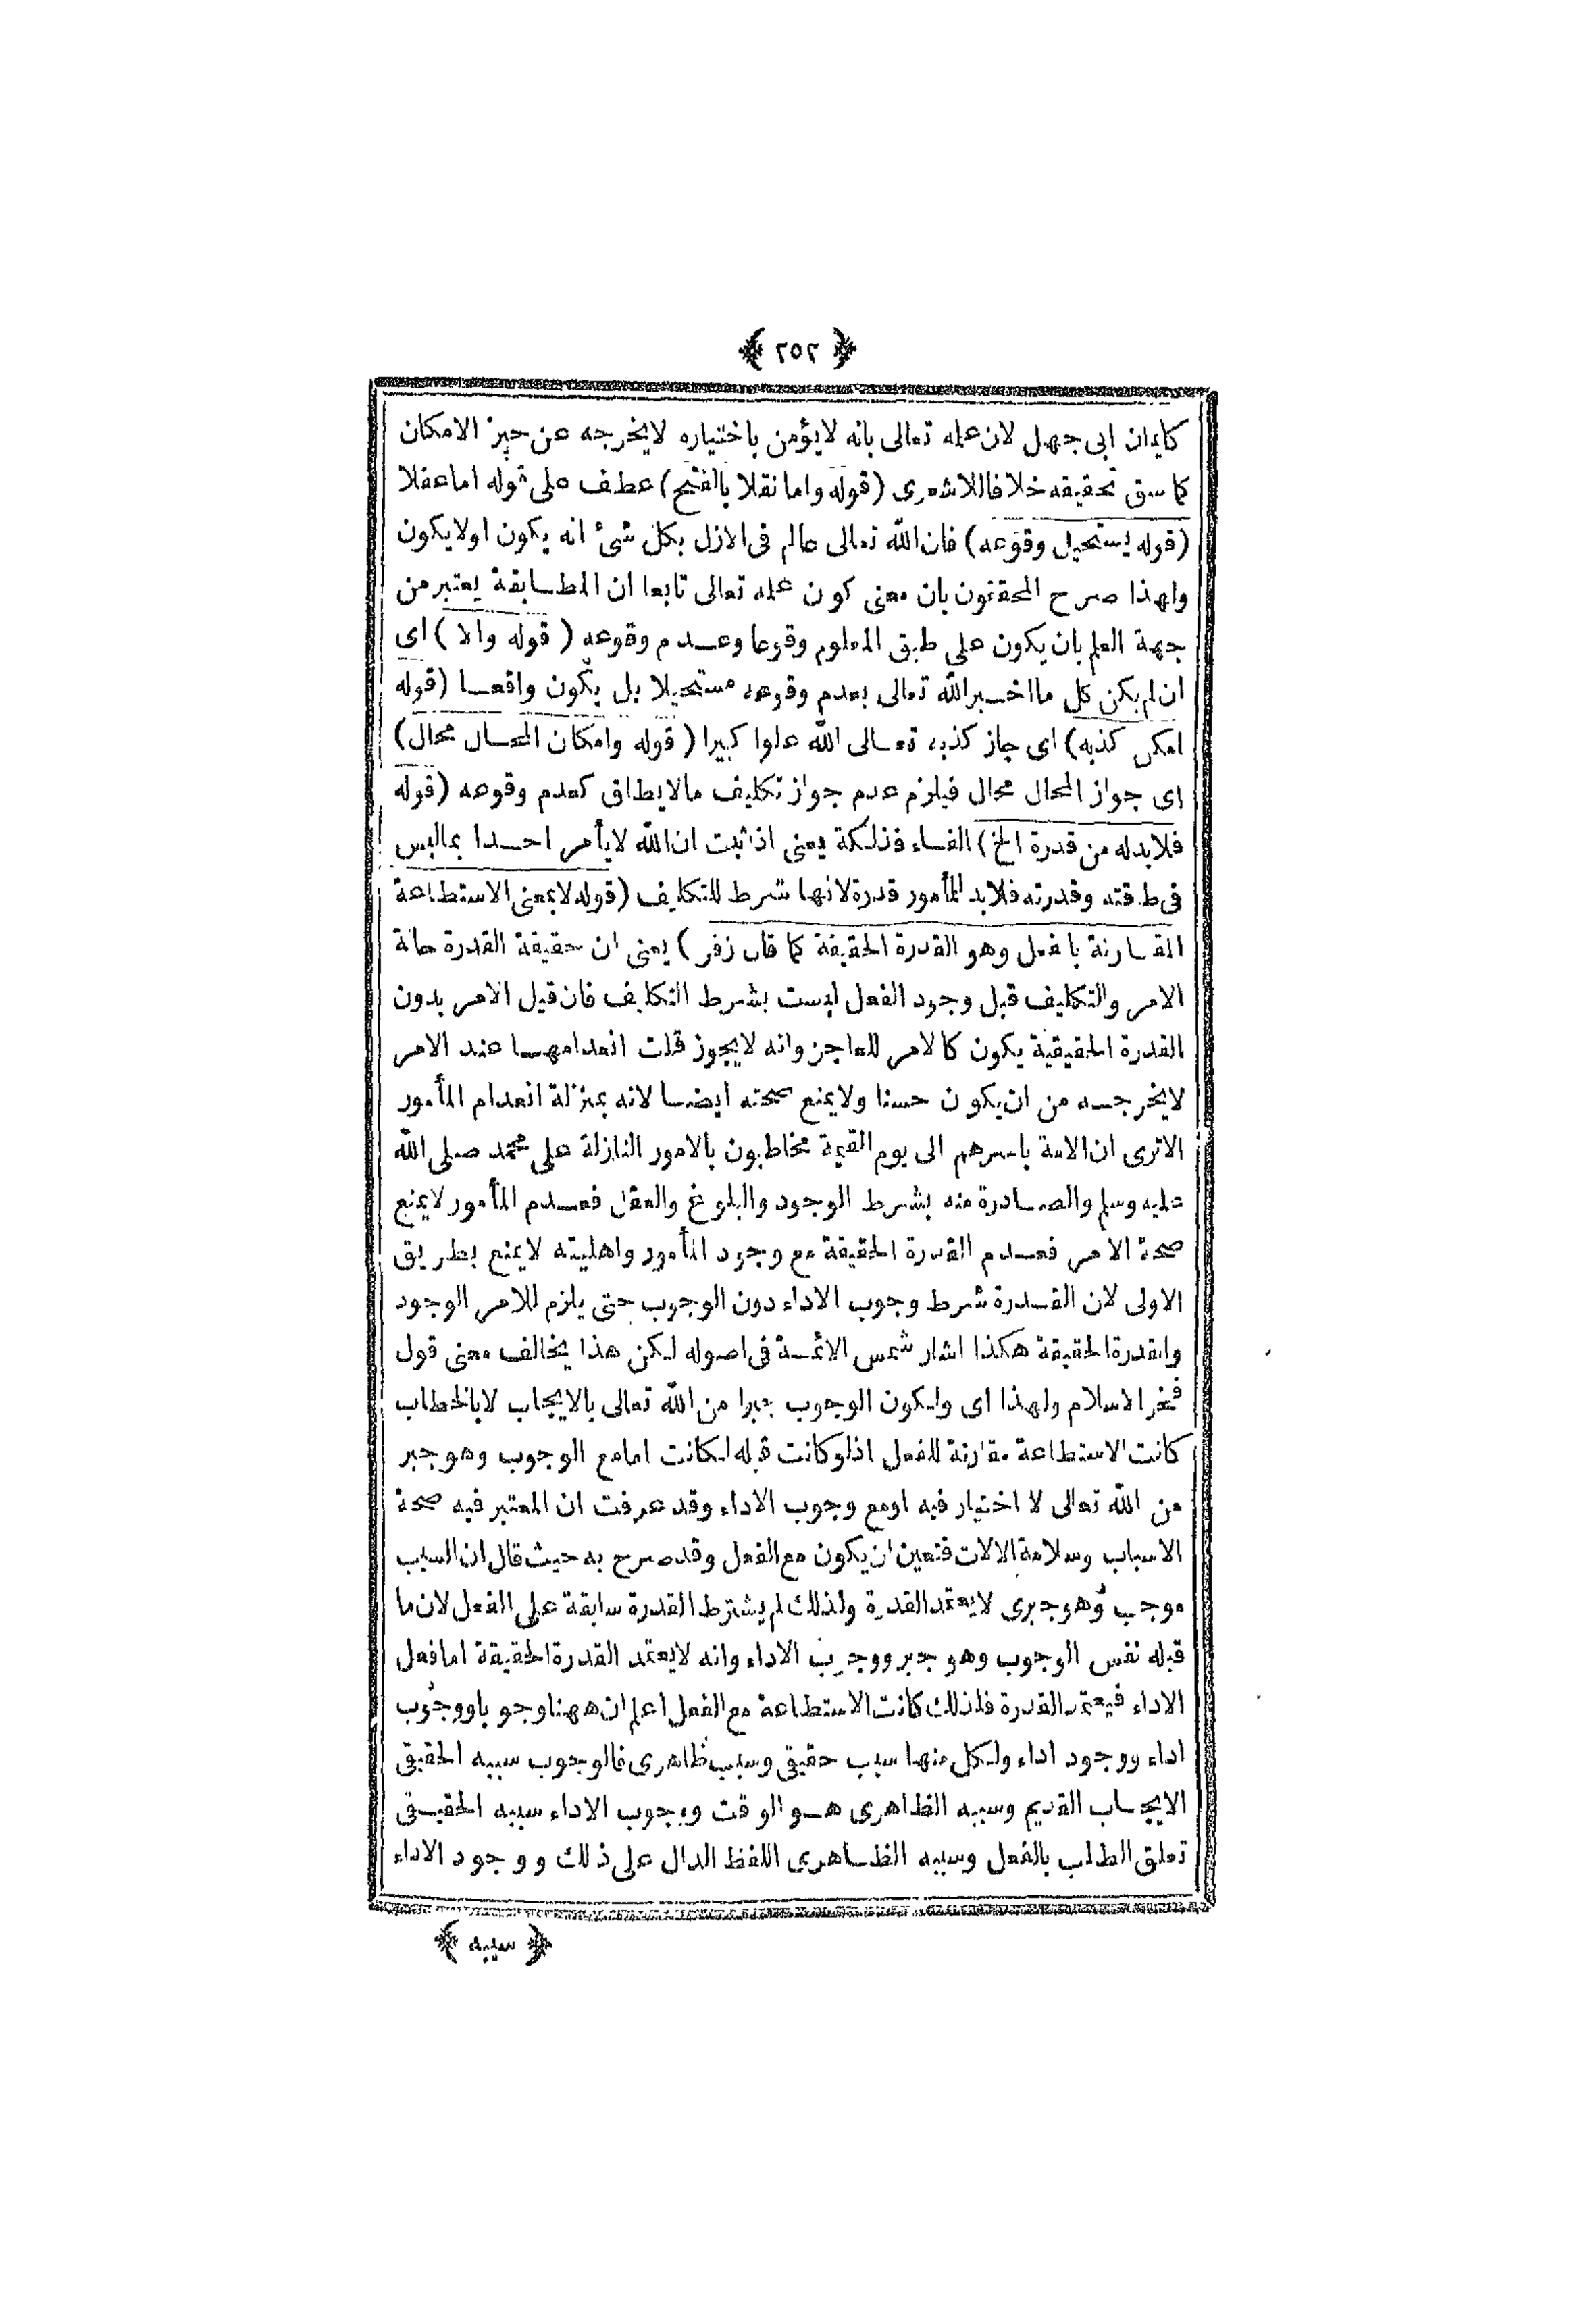 ﴿ ٢٥٢ ﴾
كايمان ابى جهل لان علمه تعالى بانه لايؤمن باختياره لايخرجه عن حيز الامكان
كما سبق تحقيقه خلافاللاشعرى (قوله واما نقلا بالفتح) عطف على قوله اما عقلا
(قوله يستحيل وقوعه) فان الله تعالى عالم فى الازل بكل شئ انه يكون اولايكون
ولهذا صرح المحققون بان معنى كون علمه تعالى تابعا ان المطـابقة يعتبر من
جهة العلم بان يكون على طبق المعلوم وقوعا وعـدم وقوعه (قوله والا) اى
ان لم يكن كل مااخـبر الله تعالى بعدم وقوعه مستحيلا بل يكون واقعـا (قوله
امكن كذبه) اى جاز كذبه تعـالى الله علوا كبيرا (قوله وامكان المحـال محال)
اى جواز المحال محال فيلزم عدم جواز تكليف مالايطاق كعدم وقوعه (قوله
فلابدله من قدرة الخ) الفـاء فذلكة يعنى اذ اثبت ان الله لايأمر احـدا بماليس
فى طاقته وقدرته فلابد للمأمور قدرة لانها شرط للتكليف (قوله لابمعنى الاستطاعة
المقـارنة بالفعل وهو القدرة الحقيقة كما قال زفر) يعنى ان حقيقة القدرة حالة
الامر والتكليف قبل وجود الفعل ليست بشرط التكليف فان قيل الامر بدون
القدرة الحقيقية يكون كالامر للعاجز وانه لايجوز قلت انعدامهـا عند الامر
لايخرجـه من ان يكون حسنا ولايمنع صحته ايضـا لانه بمنزلة انعدام المأمور
الاترى ان الامة باسرهم الى يوم القيمة مخاطبون بالامور النازلة على محمد صلى الله
عليه وسلم والصـادرة منه بشرط الوجود والبلوغ والعقل فعـدم المأمور لايمنع
صحة الامر فعـدم القدرة الحقيقة مع وجود المأمور واهليته لايمنع بطريق
الاولى لان القـدرة شرط وجوب الاداء دون الوجوب حتى يلزم للامر الوجود
والقدرة الحقيقة هكذا اشار شمس الائمـة فى اصوله لكن هذا يخالف معنى قول
فخر الاسلام ولهذا اى ولكون الوجوب جبرا من الله تعالى بالايجاب لابالخطاب
كانت الاستطاعة مقارنة للفعل اذلوكانت قبله لكانت امامع الوجوب وهو جبر
من الله تعالى لا اختيار فيه اومع وجوب الاداء وقد عرفت ان المعتبر فيه صحة
الاسباب وسلامة الالات فتعين ان يكون مع الفعل وقد صرح به حيث قال ان السبب
موجب وهو جبرى لايعتمد القدرة ولذلك لم يشترط القدرة سابقة على الفعل لان ما
قبله نفس الوجوب وهو جبر ووجوب الاداء وانه لايعتمد القدرة الحقيقة اما فعل
الاداء فيعتمد القدرة فلذلك كانت الاستطاعة مع الفعل اعلم ان ههنا وجوبا ووجوب
اداء ووجود اداء ولكل منها سبب حقيقى وسبب ظاهرى فالوجوب سببه الحقيقى
الايجـاب القديم وسببه الظاهرى هـو الوقت ووجوب الاداء سببه الحقيـقى
تعلق الطلب بالفعل وسببه الظـاهرى اللفظ الدال على ذلك ووجود الاداء
﴿ سببه ﴾